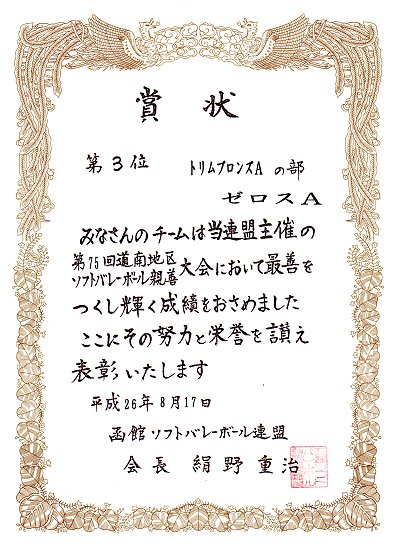 賞状
第3位 トリムブロンズA の部
ゼロスA
みなさんのチームは当連盟主催の
第75回道南地区
ソフトバレーボール親善大会において最善を
つくし輝く成績をおさめました
ここにその努力と栄誉を讃え
表彰いたします
平成26年8月17日
函館ソフトバレーボール連盟
会長 絹野重治